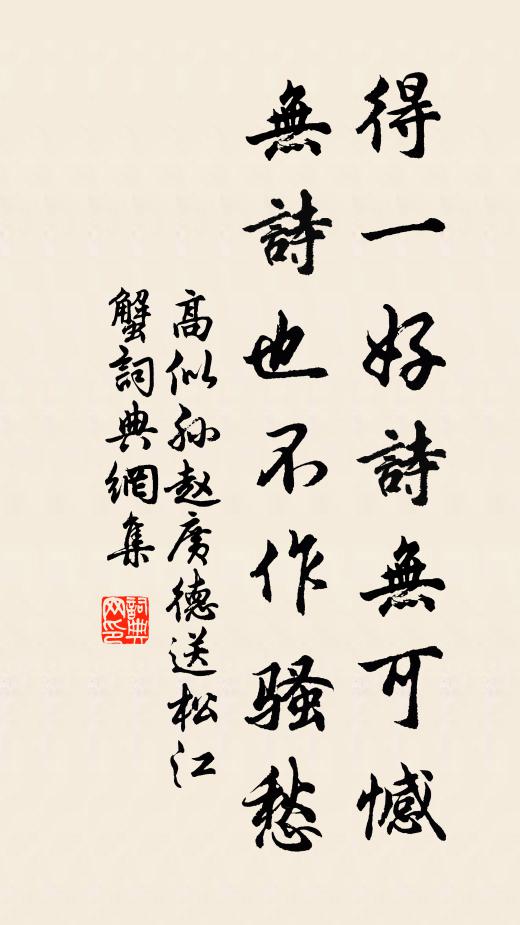 得一好詩無可憾
無詩也不作騷愁
高似孫趙廣德送松江
蟹詞典網集
詞典网印